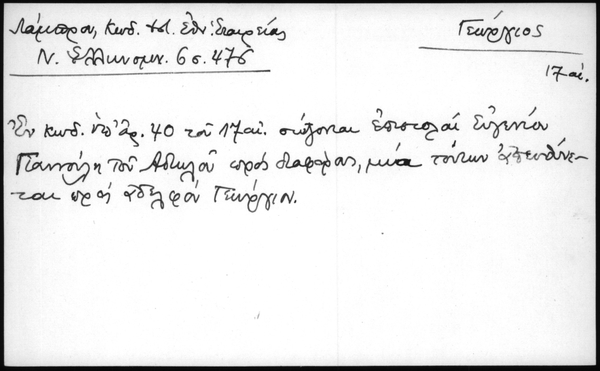 Λάμπρου, Κωδ. Ἱστ. Ἐθν. Ἑταιρείας
Ν. Ἑλληνομν. 6 σ. 476
Γεώργιος
17 αἰ.
Ἐν κωδ. ὑπ' ἀρ. 40 τοῦ 17 αἰ. σώζονται ἐπιστολαί Εὐγενίου
Γιαννούλη τοῦ Αἰτωλοῦ πρός διαφόρους, μία τούτων ἀπευθύνε-
ται πρός ἀδελφόν Γεώργιον.